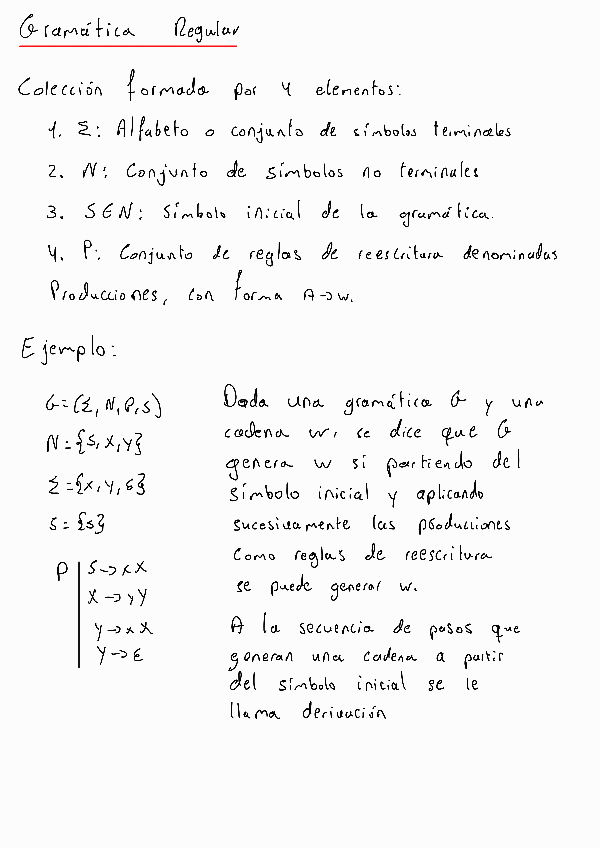 Gramática Regular
Colección formada por 4 elementos:
1. Σ: Alfabeto o conjunto de símbolos terminales
2. N: Conjunto de símbolos no terminales
3. S∈N: Símbolo inicial de la gramática.
4. P: Conjunto de reglas de reescritura denominadas
Producciones, con forma A→w.
Ejemplo:
G=(Σ,N,P,S)
N={S,X,Y}
Σ={x,y,ε}
S={s}
P | S→xX
X→yY
Y→xX
Y→ε
Dada una gramática G y una
cadena w, se dice que G
genera w si partiendo del
símbolo inicial y aplicando
sucesivamente las producciones
como reglas de reescritura
se puede generar w.
A la secuencia de pasos que
generan una cadena a partir
del símbolo inicial se le
llama derivación